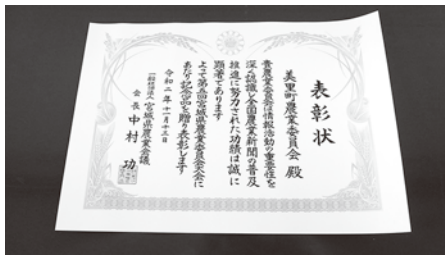 表彰状
美里町農業委員会 殿
貴農業委員会は情報活動の重要性を
深く認識し全国農業新聞の普及
推進に努力された功績は誠に
顕著であります
よって第五回宮城県農業委員会大会に
あたり記念品を贈り表彰します
令和二年十一月十三日
一般社団法人 宮城県農業会議
会長 中村 功